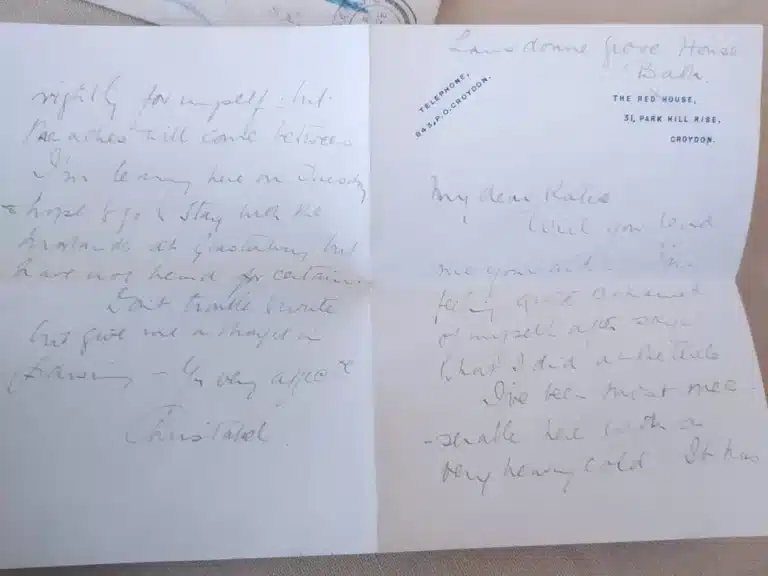 Lansdowne Grove House
Bath.
TELEPHONE,
943, P.O. CROYDON.
THE RED HOUSE,
31, PARK HILL RISE,
CROYDON.
My dear Katie
Will you send
me your I'm
feeling quite ashamed
of myself after
what I did
I've been most mee-
-serable here with a
very heavy cold It has
rightly for myself but
will come between
I'm leaving here on Tuesday
& hope to go & stay with the
at Glastonbury but
have not heard for certain.
Don't trouble to write
but give me a
Yr very affec te
Christabel.